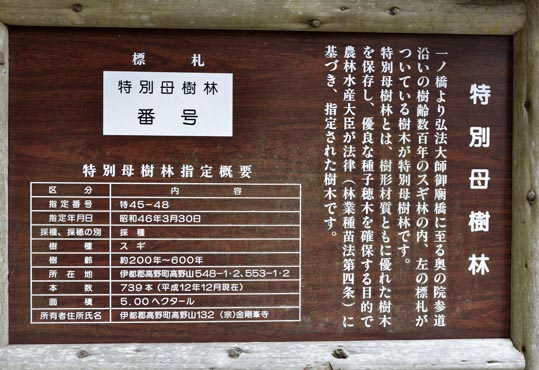 特別母樹林
一ノ橋より弘法大師御廟橋に至る奥の院参道
沿いの樹齢数百年のスギ林の内、左の標札が
ついている樹木が特別母樹林です。
特別母樹林とは、樹形材質ともに優れた樹木
を保存し、優良な種子穂木を確保する目的で
農林水産大臣が法律（林業種苗法第四条）に
基づき、指定された樹木です。
標札
特別母樹林
番号
特別母樹林指定概要
区分 内容
指定番号 特45−48
指定年月日 昭和46年3月30日
採種、採穂の別 採種
樹種 スギ
樹齢 約200年〜600年
所在地 伊都郡高野町高野山548−1・2、553−1・2
本数 739本（平成12年12月現在）
面積 5.00ヘクタール
所有者住所氏名 伊都郡高野町高野山132（宗）金剛峯寺